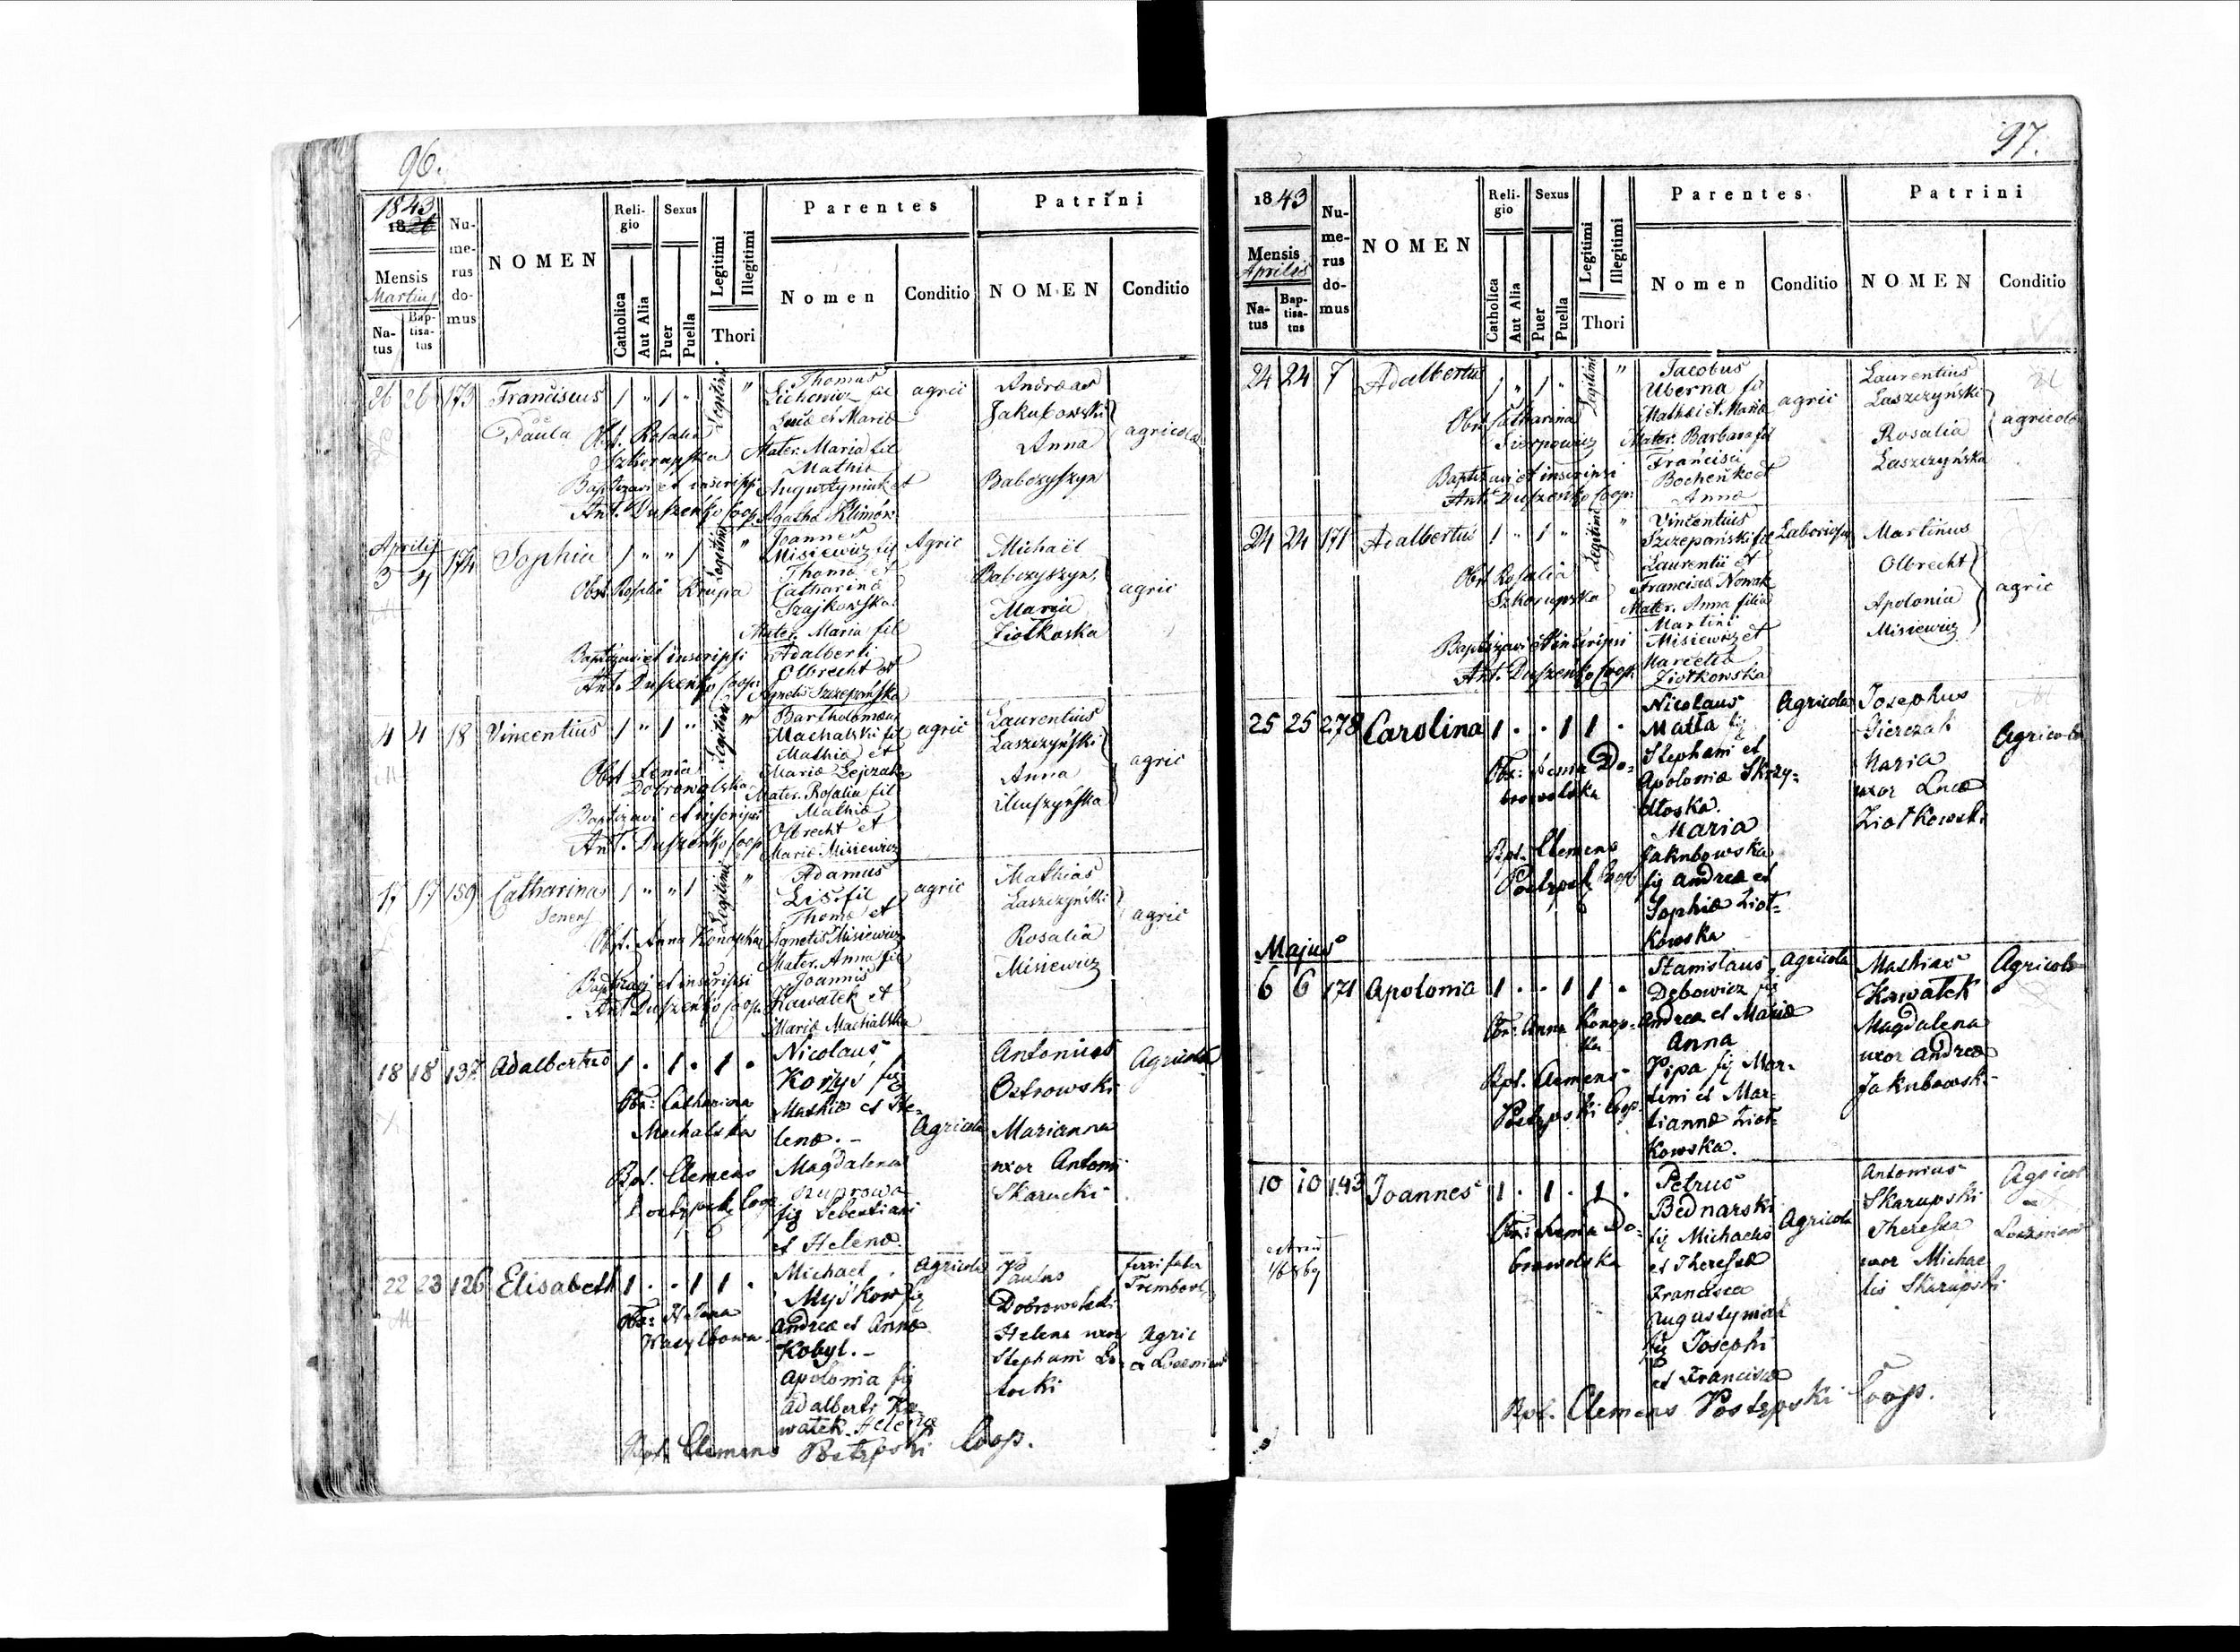 96.
1843
1826
Mensis
Martius
Na-
tus
Bap-
tisa-
tus
Nu-
me-
rus
do-
mus
NOMEN
Reli-
gio
Catholica
Aut Alia
Sexus
Puer
Puella
Legitimi
Illegitimi
Thori
Parentes
Nomen
Conditio
Patrini
NOMEN
Conditio
26 26 173 Franciscus 1 " 1 " Legitimi "
de
Paula
Obst. Rosalia
Baptizavi et inscripsi
Ant. Duszeńko Coop.
Thomas
Lichowicz fil
Lucæ et Mariæ
Mater. Maria fil
Mathiæ
Augustyniuk et
Agatha Klimow
agric
Andreas
Jakubowski
Anna
Babczyszyn
agricolæ
Aprilis
3 4 174 Sophia 1 " " 1 Legitimi "
Obst Rosalia Krupa
Baptizavi et inscripsi
Ant. Duszeńko Coop.
Joannes
Misiewicz fil
Thomæ et
Catharinæ
Szajkowska
Mater. Maria fil
Adalberti
Olbrecht et
Agnetis Szczepańska
Agric
Michaël
Babczyszyn
Maria
Ziołkoska
agric
4 4 18 Vincentius 1 " 1 " Legitimi "
Obst Xenia
Dobrowolska
Baptizavi et inscripsi
Ant. Duszeńko Coop.
Bartholomæus
Machalski fil
Mathiæ et
Mariæ Lejczak
Mater. Rosalia fil
Mathiæ
Olbrecht et
Mariæ Misiewicz
agric
Laurentius
Łaszczyński
Anna
Muszyńska
agric
17 17 159 Catharina 1 " " 1 Legitimi "
Senens
Obst. Anna Konopka
Baptizavi et inscripsi
Ant Duszeńko Coop.
Adamus
Lis fil
Thomæ et
Agnetis Misiewicz
Mater. Anna fil
Joannis
Kawałek et
Mariæ Machalska
agric
Mathias
Łaszczyński
Rosalia
Misiewicz
agric
18 18 137 Adalbertus 1 . 1 . 1 .
Obx: Catharina
Machalska
Bpt. Clemens
Nicolaus
Korżyś fig
Mathiæ et He-
lenæ. -
Magdalena
fig Sebestiani
et Helenæ.
Agricola
Antonius
Ostrowski
Marianna
uxor Antoni
Skarucki
Agricola
22 23 126 Elisabeth 1 . . 1 1 .
Obx: Helena
Wasylbowa
Michael
Myśkow fig
Andreæ et Annæ
Kobyl. -
Apolonia fig
Adalberti Ka-
watek. Helenæ
Agricola
Paulus
Dobrowolski
Helena uxor
Stephani
Agric
Bpt. Clemens Postępski Coop.
97.
1843
Mensis
Aprilis
Na-
tus
Bap-
tisa-
tus
Nu-
me-
rus
do-
mus
NOMEN
Reli-
gio
Catholica
Aut Alia
Sexus
Puer
Puella
Legitimi
Illegitimi
Thori
Parentes
Nomen
Conditio
Patrini
NOMEN
Conditio
24 24 7 Adalbertus 1 " 1 " Legitimi "
Obst Catharina
Baptizavi et inscripsi
Ant. Duszeńko Coop.
Jacobus
Uberna fil
Mathæi et Mariæ
Mater. Barbara fil
Francisci
Bocheńko et
Annæ
agric
Laurentius
Łaszczyński
Rosalia
Łaszczyńska
agricolæ
24 24 171 Adalbertus 1 " 1 " Legitimi "
Obst Rosalia
Baptizavi et inscripsi
Ant. Duszeńko Coop.
Vincentius
Szczepański fil
Laurentii et
Francisca Nowak
Mater. Anna filia
Martini
Misiewicz et
Ziołkowska
Martinus
Olbrecht
Apolonia
Misiewicz
agric
25 25 278 Carolina 1 . . 1 1 .
Obx: Xenia Do-
browolska
Bpt. Clemens
Postępski Coop
Nicolaus
Małta fig
Stephani et
Apoloniæ Skrzy-
dłoska.
Maria
Jakubowska
fig Andreæ et
Sophiæ Zioł-
kowska
Agricola
Josephus
Gierczak
Maria
uxor Lucæ
Ziołkowski
Agricola
Majus
6 6 171 Apolonia 1 . . 1 1 .
Obx: Anna Konop-
ka
Bpt. Clemens
Postępski Coop.
Stanislaus
Dębowicz fig
Andreæ et Mariæ
Anna
Pipa fig Mar-
tini et Mar-
iannæ Zioł-
kowska.
Agricola
Mathias
Kawatek
Magdalena
uxor Andreæ
Jakubowski
Agricola
10 10 143 Joannes 1 . 1 . 1 .
Obx: Xenia Do-
browolska
Petrus
Bednarski
fig Michaelis
et Theresæ
Francisca
Augustyniak
fig Josephi
et Franciscæ
Agricola
Antonius
Skarupski
Theresia
uxor Michae
lis Skarupski
Agricol
Bpt. Clemens Postępski Coop.